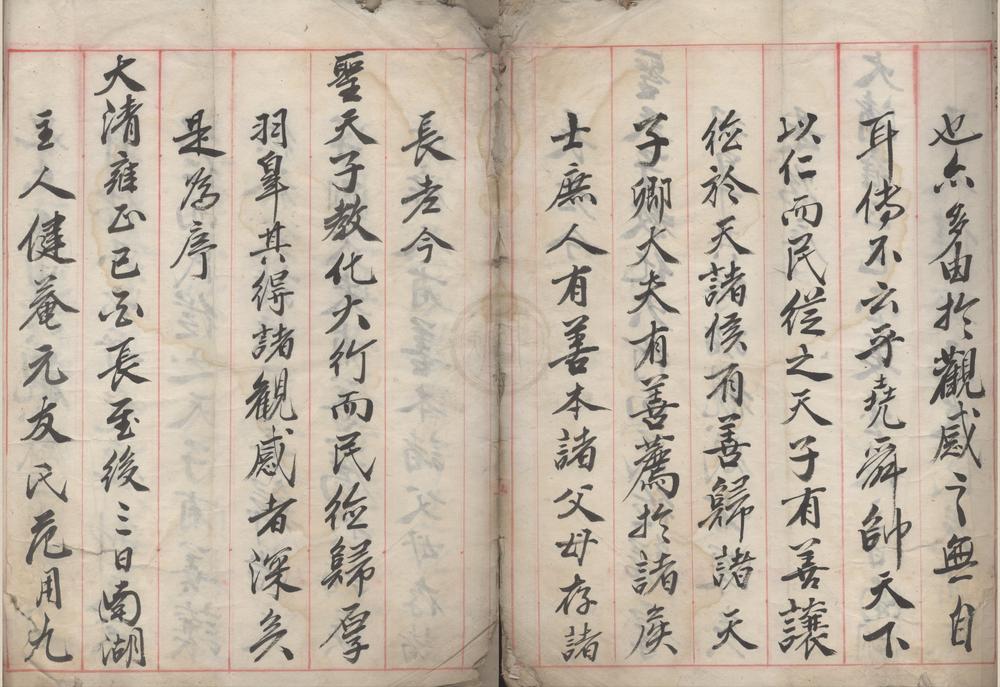 也亦多由於觀感之無自
耳傳不云乎堯舜帥天下
以仁而民從之天子有善讓
德於天諸侯有善歸諸天
子卿大夫有善薦於諸侯
士庶人有善本諸父母存諸
長老今
聖天子教化大行而民德歸厚
羽皐其得諸觀感者深矣
是為序
大清雍正己酉長至後三日南湖
主人健菴元友氏范用九